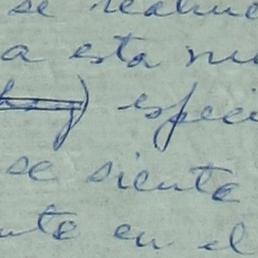 se realiz
a esta nu
hoy) especi
se siente
nte en el